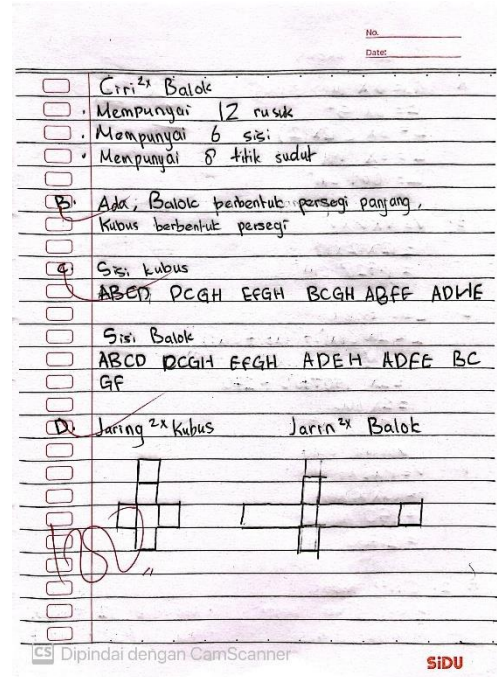 No.
Date:
Ciri 2x Balok
• Mempunyai 12 rusuk
• Mempunyai 6 sisi
• Mempunyai 8 titik sudut
B. Ada, Balok berbentuk persegi panjang,
Kubus berbentuk persegi
C. Sisi kubus
ABCD DCGH EFGH BCGH ABFE ADHE
Sisi Balok
ABCD DCGH EFGH ADEH ADFE BC
GF
D. Jaring 2x Kubus Jarin 2x Balok
100
CS Dipindai dengan CamScanner
SiDU